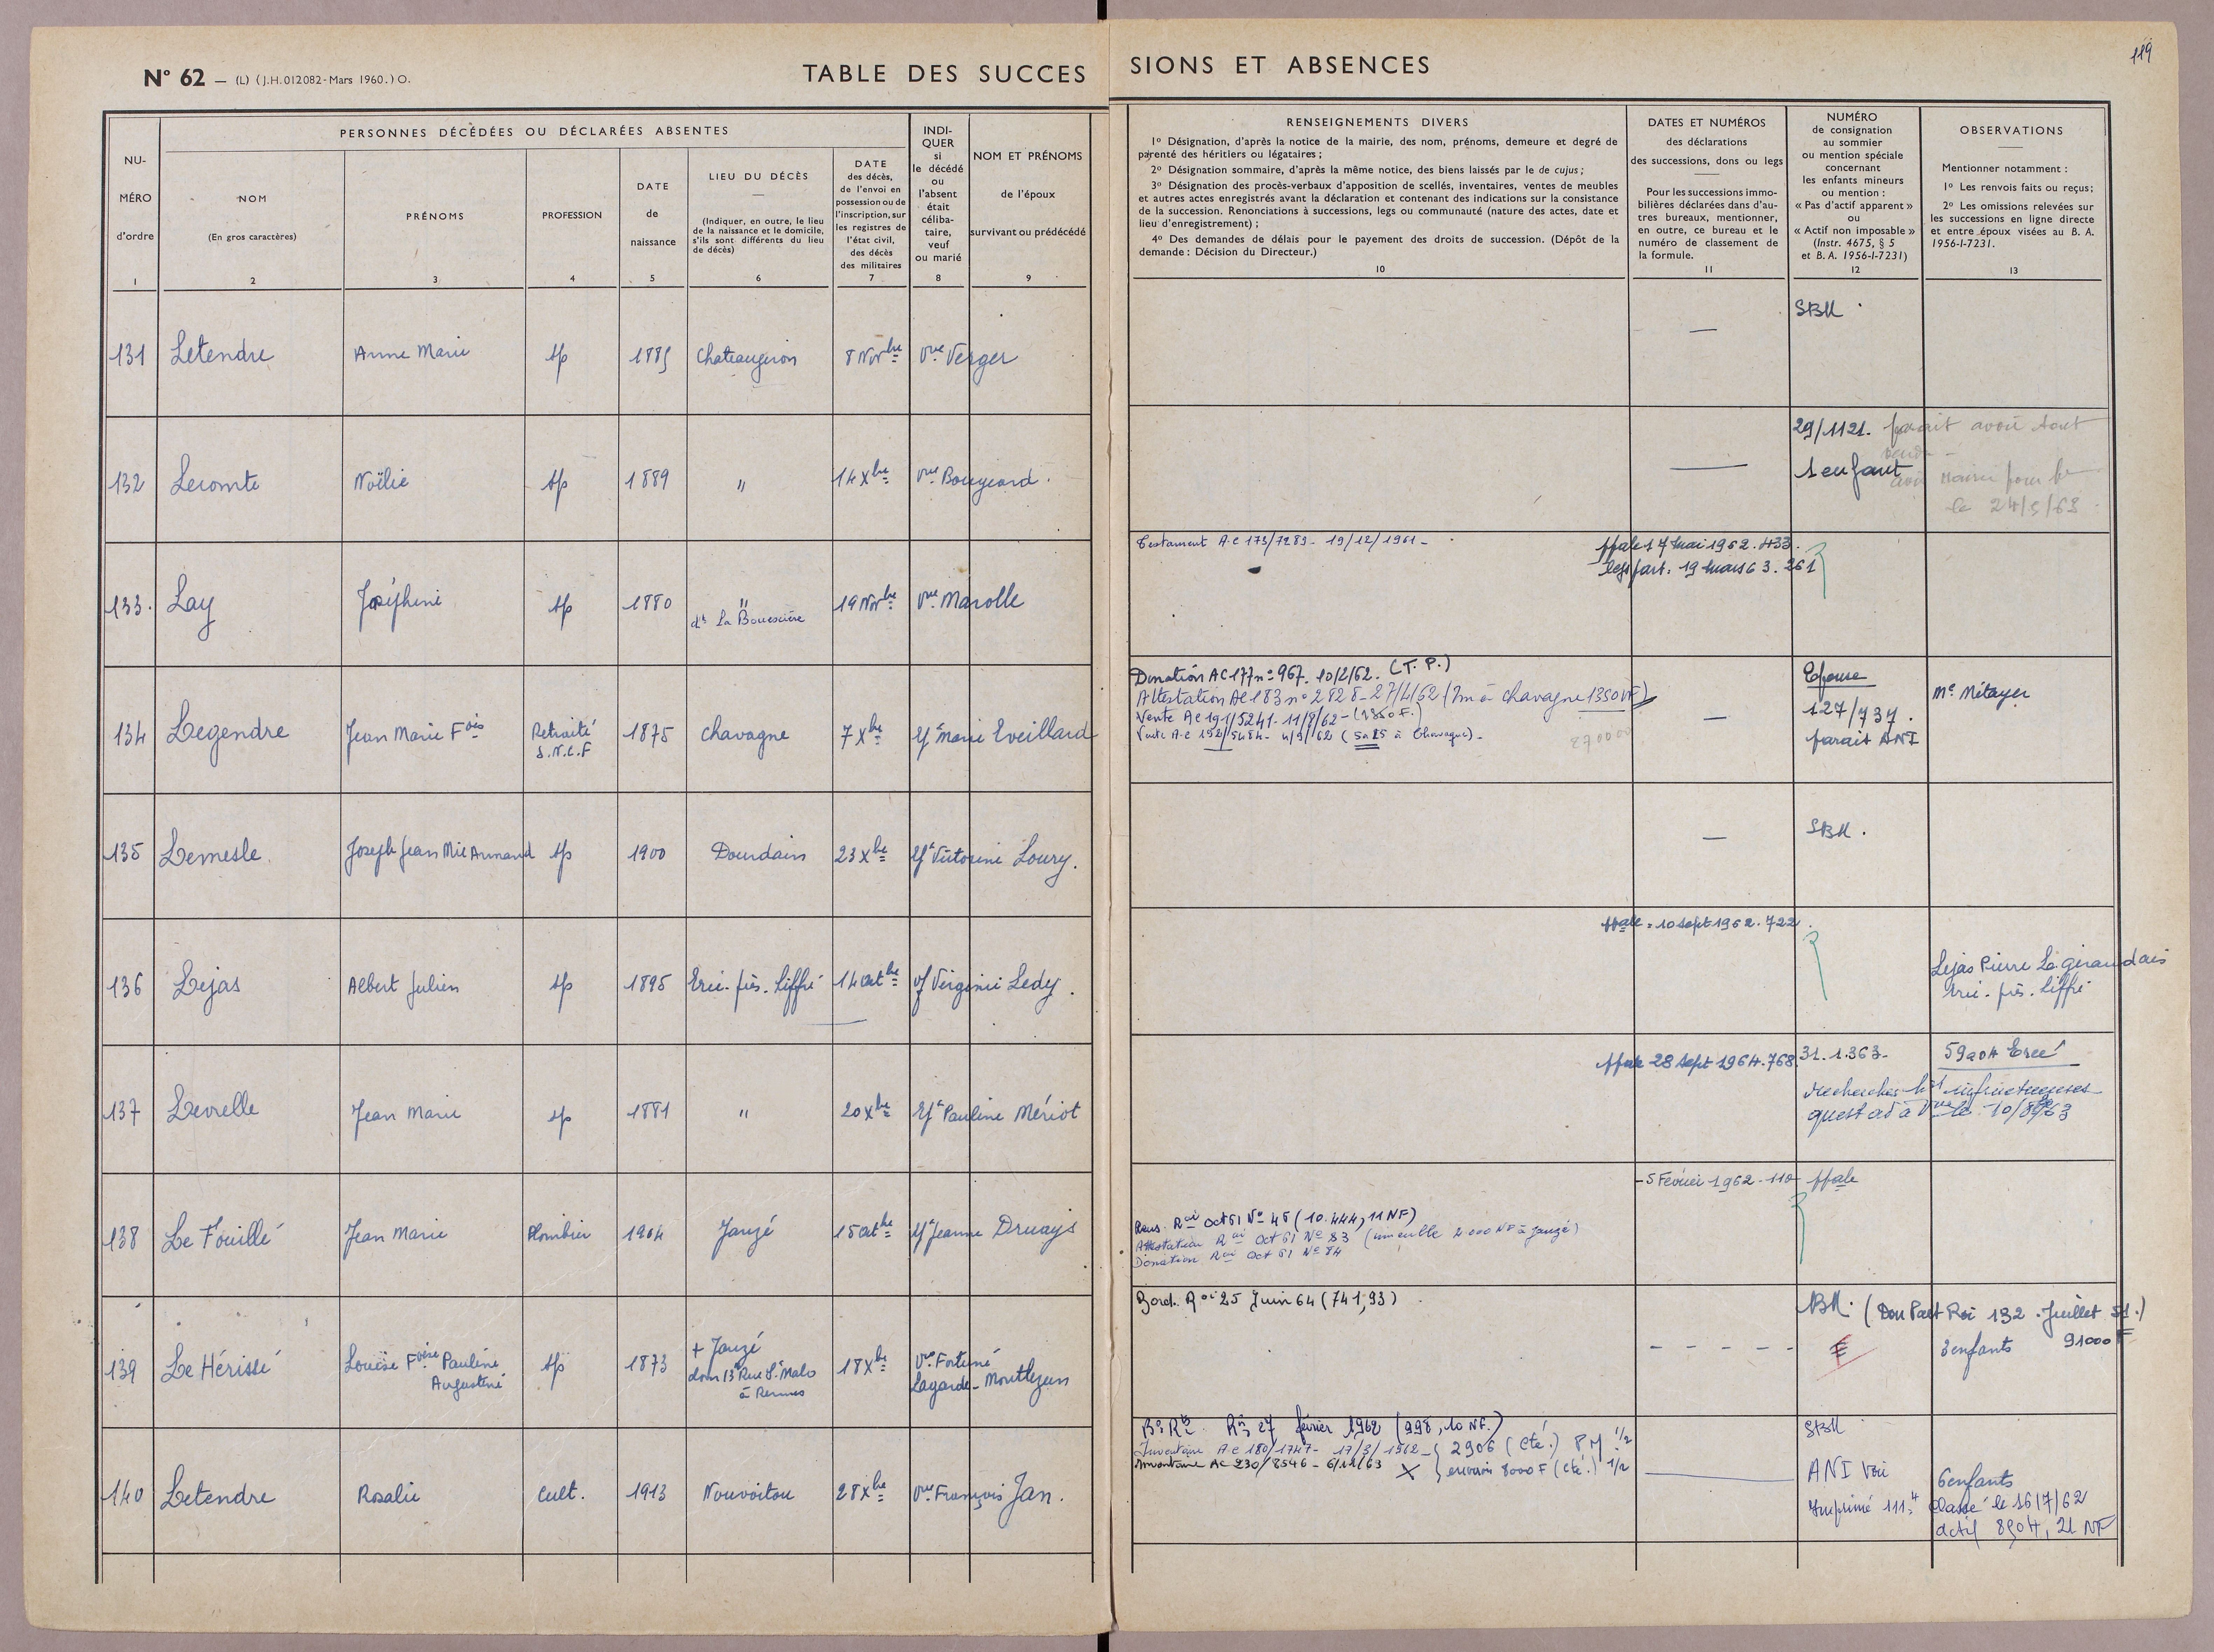 119
N° 62 — (L) (J.H.012082-Mars 1960.) O.
TABLE DES SUCCES
SIONS ET ABSENCES
NU-
MÉRO
d'ordre
1
PERSONNES DÉCÉDÉES OU DÉCLARÉES ABSENTES
NOM
(En gros caractères)
2
PRÉNOMS
3
PROFESSION
4
DATE
de
naissance
5
LIEU DU DÉCÈS
(Indiquer, en outre, le lieu
de la naissance et le domicile,
s'ils sont différents du lieu
de décès)
6
DATE
des décès,
de l'envoi en
possession ou de
l'inscription, sur
les registres de
l'état civil,
des décès
des militaires
7
INDI-
QUER
si
le décédé
ou
l'absent
était
céliba-
taire,
veuf
ou marié
8
NOM ET PRÉNOMS
de l'époux
survivant ou prédécédé
9
RENSEIGNEMENTS DIVERS
1° Désignation, d'après la notice de la mairie, des nom, prénoms, demeure et degré de
parenté des héritiers ou légataires ;
2° Désignation sommaire, d'après la même notice, des biens laissés par le de cujus ;
3° Désignation des procès-verbaux d'apposition de scellés, inventaires, ventes de meubles
et autres actes enregistrés avant la déclaration et contenant des indications sur la consistance
de la succession. Renonciations à successions, legs ou communauté (nature des actes, date et
lieu d'enregistrement) ;
4° Des demandes de délais pour le payement des droits de succession. (Dépôt de la
demande : Décision du Directeur.)
10
DATES ET NUMÉROS
des déclarations
des successions, dons ou legs
Pour les successions immo-
bilières déclarées dans d'au-
tres bureaux, mentionner,
en outre, ce bureau et le
numéro de classement de
la formule.
11
NUMÉRO
de consignation
au sommier
ou mention spéciale
concernant
les enfants mineurs
ou mention :
« Pas d'actif apparent »
ou
« Actif non imposable »
(Instr. 4675, § 5
et B. A. 1956-I-7231)
12
OBSERVATIONS
Mentionner notamment :
1° Les renvois faits ou reçus ;
2° Les omissions relevées sur
les successions en ligne directe
et entre époux visées au B. A.
1956-I-7231.
13
131 Letendre Anne Marie sp 1885 Chateaugiron 8 Novbre Vve Verger
— SBM
132 Lecomte Noëlie sp 1889 " 14 Xbre Vve Bougeard.
— 29/1121. parait avoir tout
1 enfant
le 24/5/63
133. Lay Joséphine sp 1880 "
dt La Bouexière
19 Novbre Vve Marolle
Testament A.C 173/7289 - 19/12/1961 -
ppale 17 Mai 1962. 433.
legs part. 19 Mars 63. 261
134 Legendre Jean Marie Fois Retraité
S.N.C.F
1875 Chavagne 7 Xbre Marie Eveillard
Donation AC 177 n° 967. 10/2/62. (T. P.)
Attestation AC 183 n° 2828 - 27/4/62 (Im à Chavagne 1350 NF)
Vente AC 191/5241 - 11/8/62 - (1350 F.)
Vente A.C 192/5484 - 4/9/62 (5a25 à Chavagne).
270000
— Epouse
127/737.
parait ANI
Me Métayer
135 Lemesle. Joseph Jean Mie Armand sp 1900 Dourdain 23 Xbre Victorine Loury.
— SBM.
136 Lejas Albert Julien sp 1895 Ercé-près-Liffré 14 octbre vf Virginie Ledy.
ppale = 10 sept 1962. 722.
Lejas Pierre La Giraudais
Ercé-près-Liffré
137 Levrelle Jean Marie sp 1881 " 20 Xbre Pauline Mériot
ppale 28 sept 1964. 768. 31.1.363-
59a04 Ercé
recherches infructueuses
10/8/63
138 Le Fouillé Jean Marie Plombier 1904 Janzé 15 octbre Jeanne Druays
Oct 61 N° 45 (10.444,11 NF)
Attestation Roi Oct 61 N° 83 (immeuble 2000 NF à Janzé)
Donation Roi Oct 61 N° 84
5 Février 1962. 110 ppale
139 Le Hérissé Louise Foise Pauline
Augustine
sp 1873 + Janzé
dom 13 Rue St Malo
à Rennes
18 Xbre Vve Fortuné
Lagarde-Montlezun
Bord. Roi 25 Juin 64 (741,93)
- - - - - BM. (Don Part Roi 132. Juillet 51.)
3 enfants 91000 F
140 Letendre Rosalie cult. 1913 Nouvoitou 28 Xbre Vve François Jan.
27 février 1962 (998,10 NF.)
Inventaire AC 180/1747 - 17/3/1962 - 2906 (cté.) 1/2
Inventaire AC 230/8546 - 6/11/63 X environ 8000 F (cté.) 1/2
— SBM
ANI Voir
Imprimé 111.4
6 enfants
Classé le 16/7/62
actif 8504, 21 NF